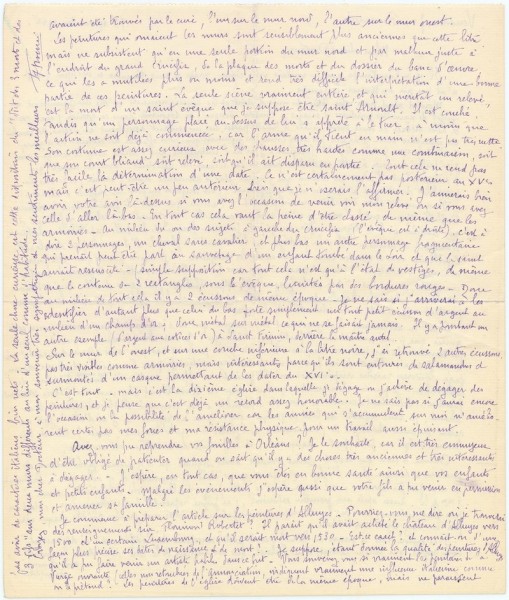 avaient été trouvées par le curé, l'une sur le mur nord, l'autre sur le mur ouest.
Les peintures qui ornaient les murs sont sensiblement plus anciennes que cette litre
mais ne subsistent qu'en une seule portion du mur nord et par malheur juste à
l'endroit du grand crucifix, de la plaque des morts et du dossier du banc d'œuvre
ce qui les a mutilées plus ou moins et rend très difficile l'interprétation d'une bonne
partie de ces peintures. La seule scène vraiment entière et qui mériterait un relevé
est la mort d'un saint évêque que je suppose être saint
tandis qu'un personnage placé au-dessus de lui s'apprête à le tuer, à moins que
l'action ne soit déjà commencée, car l'arme qu'il tient en main n'est pas très nette
Son costume est assez curieux avec des chausses très hautes comme une combinaison, soit
que son court bliaud soit relevé soit qu'il ait disparu en partie. Tout cela ne rend pas
très facile la détermination d'une date. Ce n'est certainement pas postérieur au XVe
mais c'est peut-être un peu antérieur sans que je n'oserai l'affirmer. J'aimerais bien
avoir votre avis là-dessus si vous avez l'occasion de venir
celle d'aller là-bas. En tout cas cela vaut la peine d'être classé, de même que les
armoiries. Au milieu de ou des sujets à gauche du crucifix (l'évêque est à droite), c'est à
dire 2 personnages, un cheval sans cavalier, et plus bas un autre personnage fragmentaire
qui prenait peut-être part au sauvetage d'un enfant tombé dans le et que le saint
aurait ressuscité (simple supposition car tout cela n'est qu'à l'état de vestiges, de même
que le contenu de 2 rectangles, sous l'évêque, limités par des bordures rouges. Donc
au milieu de tout cela il y a 2 écussons de même époque. Je ne sais si j'arriverai à les
identifier d'autant plus que celui du bas porte simplement un tout petit écusson d'argent au
milieu d'un champ d'or, donc métal sur métal ce qui ne se faisait jamais. Il y a pourtant un
autre exemple (d'argent aux d'or) à Saint, derrière le maître autel.
Sur le mur de l'ouest, et sur une couche inférieure à la litre noire, j'ai retrouvé 2 autres écussons,
pas très visibles comme armoiries, mais intéressants parce qu'ils sont entourés de salamandres et
surmontés d'un casque permettant de les dater du XVIe.
C'est tout. mais c'est la dixième église dans laquelle je dégage ou j'achève de dégager des
peintures, et je pense que c'est déjà un record assez honorable. Je ne sais pas si j'aurai encore
l'occasion ou la possibilité de l'améliorer car les années qui s'accumulent sur moi n'améliorent
certes pas mes forces et ma résistance physique pour un travail aussi épuisant.
Avez-vous pu reprendre vos fouilles à Orléans? Je le souhaite, car il est très ennuyeux
d'être obligé de patienter quand on sait qu'il y a des choses très anciennes et très intéressantes
à dégager. J'espère, en tout cas, que vous êtes en bonne santé ainsi que vos enfants
et petits enfants. Malgré les évènements j'espère aussi que votre fils a pu venir en permission
et amener sa famille.
Je commence à préparer l'article sur les peintures d'Alluyes. Pourriez-vous me dire où je trouverais
des renseignements sur Florimond Robertet? Il paraît qu'il avait acheté le château d'Alluyes vers
1500 et qu'il serait mort vers 1530. Est-ce exact? et connait-on d'une
façon plus précise ses dates de naissance et de mort? Je suppose, étant donné la qualité des peintures d'Alluyes
qu'il a dû faire venir un artiste parisien. Vous souvenez vous si vraiment
Vierge ouvrante (celles non retouchées de l'Annonciation) indiquent vraiment une influence allemande comme
on le prétend? Les peintures de l'église doivent être de la même époque, mais ne paraissent
pas avoir de caractère italien bien net. La seule chose curieuse est cette répartition du "Dit des 3 morts et des
3 vifs" sur deux murs différents au lieu d'un seul comme d'habitude.
mon souvenir très sympathique et mes sentiments les meilleurs